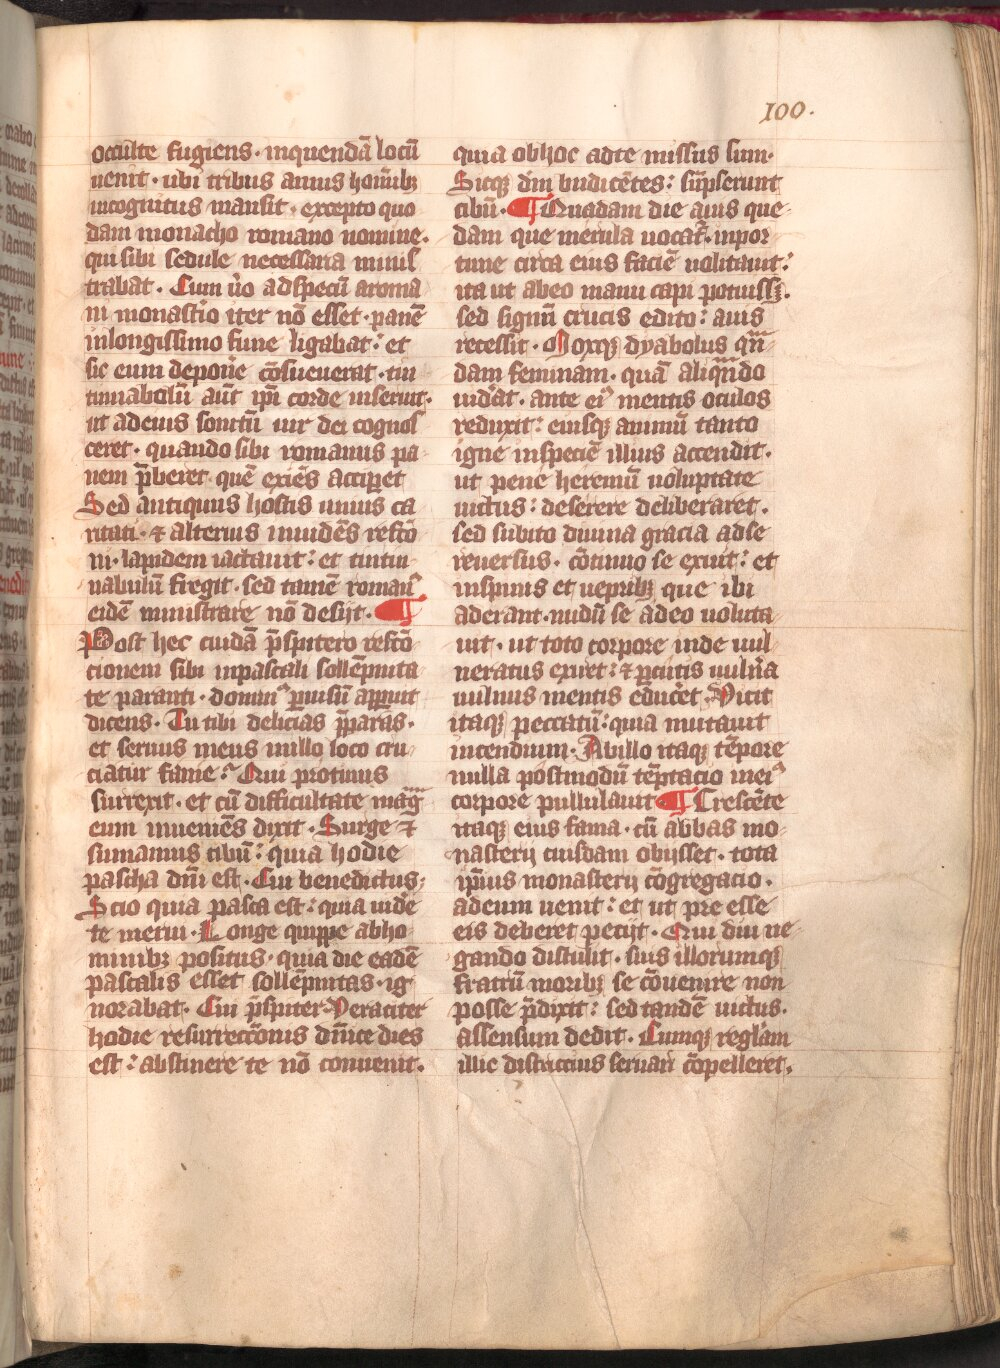 100.
occulte fugiens · inquendā locū
uenit · ubi tribus annis homībꝫ
incognitus mansit · excepto quo
dam monacho romano nomine ·
qui sibi sedule necessaria minis
trabat · Cum ūo ad specū a roma
ni monast̄io iter nō esset · panē
in longissimo fune ligabat : et
sic eum depone᷑ cōsueuerat · tin
tinnabolū aūt ip̄i corde inseruit ·
ut ad eius sonitū uir dei cognos
ceret · quando sibi romanus pa
nem p̄beret · quē exiēs acciꝑet
Sed antiquus hostis unius ca
ritati · ⁊ alterius inuidēs refcō
ni · lapidem iactauit : et tintin
nabulū fregit · sed tamē romanꝰ
eidē ministrare nō desijt · ¶
Post hec cuidā p̄spitero refcō
cionem sibi in pascali sollēpnita
te paranti · dominꝰ ꝑ uisū apꝑuit
dicens · Tu tibi delicias p̄paras ·
et seruus meus in illo loco cru
ciatur fame : Qui protinus
surrexit · et cū difficultate mag̃
eum inueniēs dixit · Surge ⁊
sumamus cibū : quia hodie
pascha dn̄i est · Cui benedictus ;
Scio quia pasca est : quia uide᷑
te merui · Longe quippe ab ho
minibꝫ positus · quia die eadē
pascalis esset sollēpnitas · ig
norabat · Cui p̄spiter · Veraciter
hodie resurreccōnis dn̄ice dies
est : abstinere te nō conuenit ·
quia ob hoc ad te missus sum ·
Sicqꝫ dn̄m bn̄dicētes : sūpserunt
cibū · ¶ Quadam die auis que
dam que merula uocat᷑ · inpor
tune circa eius faciē uolitauit :
ita ut ab eo manu capi potuissꝫ .
sed signū crucis edito : auis
recessit · Moxqꝫ dyabolus qn̄
dam feminam · quā aliqn̄do
uid᷑at · ante eiꝰ mentis oculos
reduxit : eiusqꝫ animū tanto
igne in specie illius accendit ·
ut pene heremū uoluptate
uictus : deserere deliberaret ·
sed subito diuina gracia ad se
reuersus · cōtinuo se exuit : et
in spinis et uepribꝫ que ibi
aderant · nudū se adeo uoluta
uit · ut toto corpore inde uul
neratus exiret : ⁊ ꝑ cutis uuln᷑a
uulnus mentis educ᷑et · Vicit
itaqꝫ peccatū : quia mutauit
incendium · Ab illo itaqꝫ tēpore
nulla postmodū tēptacio in eiꝰ
corpore pullulauit · ¶ Crescēte
itaqꝫ eius fama · cū abbas mo
nasterij cuiusdam obijsset · tota
ip̄ius monasterij cōgregacio ·
ad eum uenit : et ut pre esse
eis deberet petijt · Qui diu ne
gando distulit · suis illorumqꝫ
fratrū moribꝫ se cōuenire non
posse p̄dixit : sed tandē uictus ·
assensum dedit · Cumqꝫ regl᷑am
illic districcius seruari cōpelleret ·